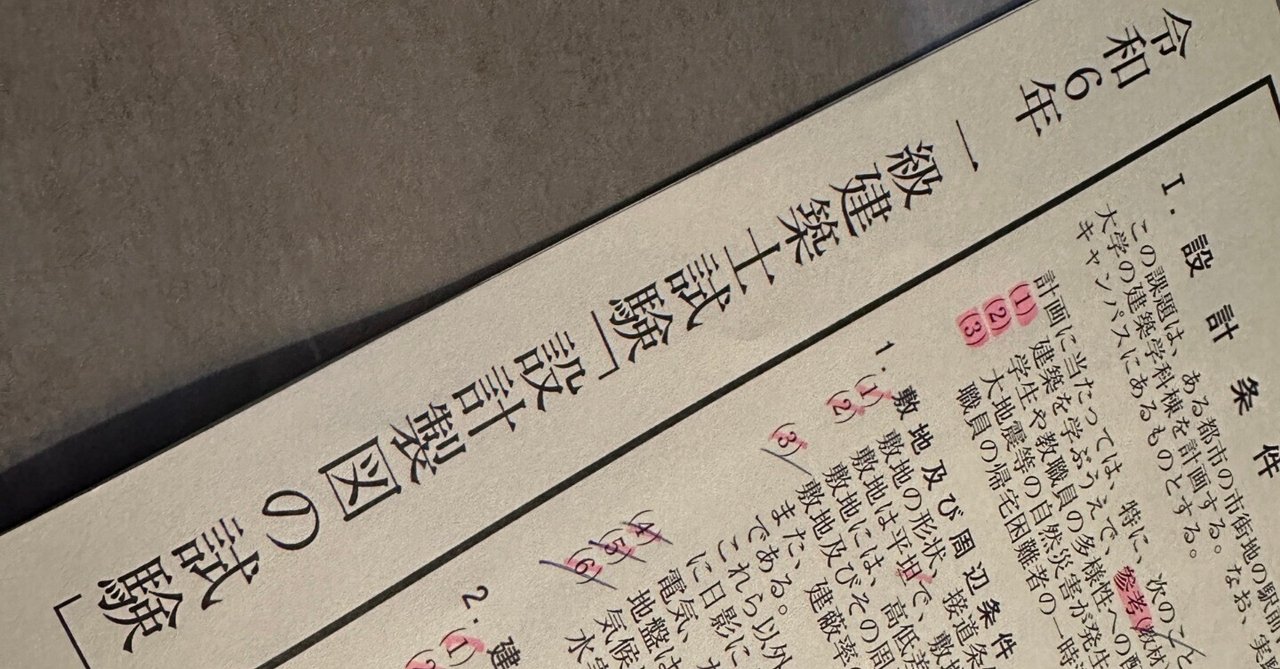 令和6年
一級建築士試験「設計製図の試験
I. 設計条件
この課題は、ある都市の市街地の駅前
大学の建築学科棟を計画する。なお、
キャンパスにあるものとする。
計画に当たっては、特に、次の
(1) 建築を学ぶうえで、参考
(2) 学生や教職員の多様性への
(3) 大地震等の自然災害が発生
職員の帰宅困難者の一時
1. 敷地及び周辺条件
(1) 敷地の形状、接道条件
(2) 敷地は平坦で、
(3) 敷地には、高低差
敷地及びその周
また、建蔽率
である。
(4) これら以外
に日影に
(5) 電気、
(6) 地盤は
気候
2. 建
(1)